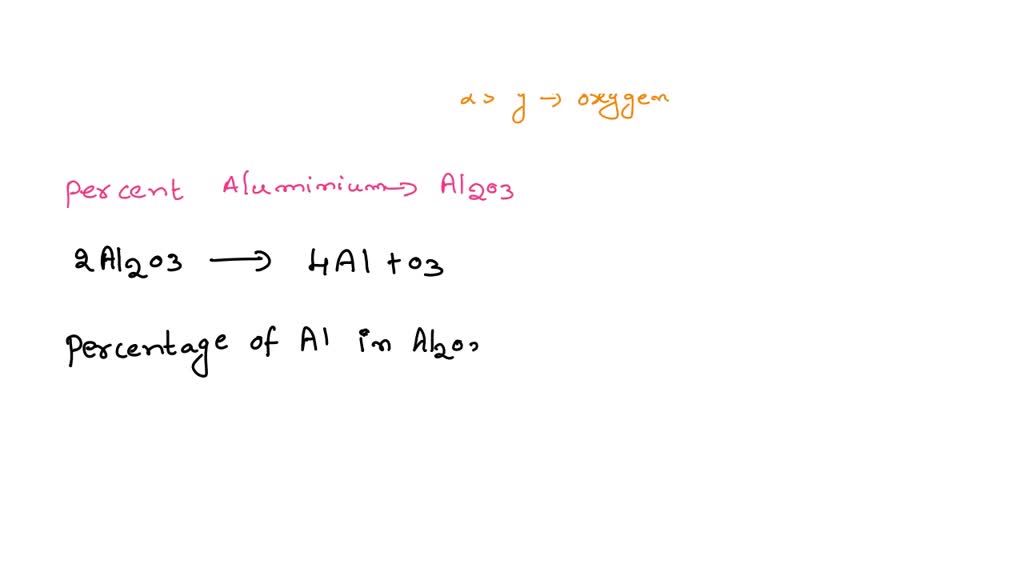 α > y → oxygen
Percent Aluminium → Al2O3
2Al2O3 → 4Al + O3
Percentage of Al in Al2O3